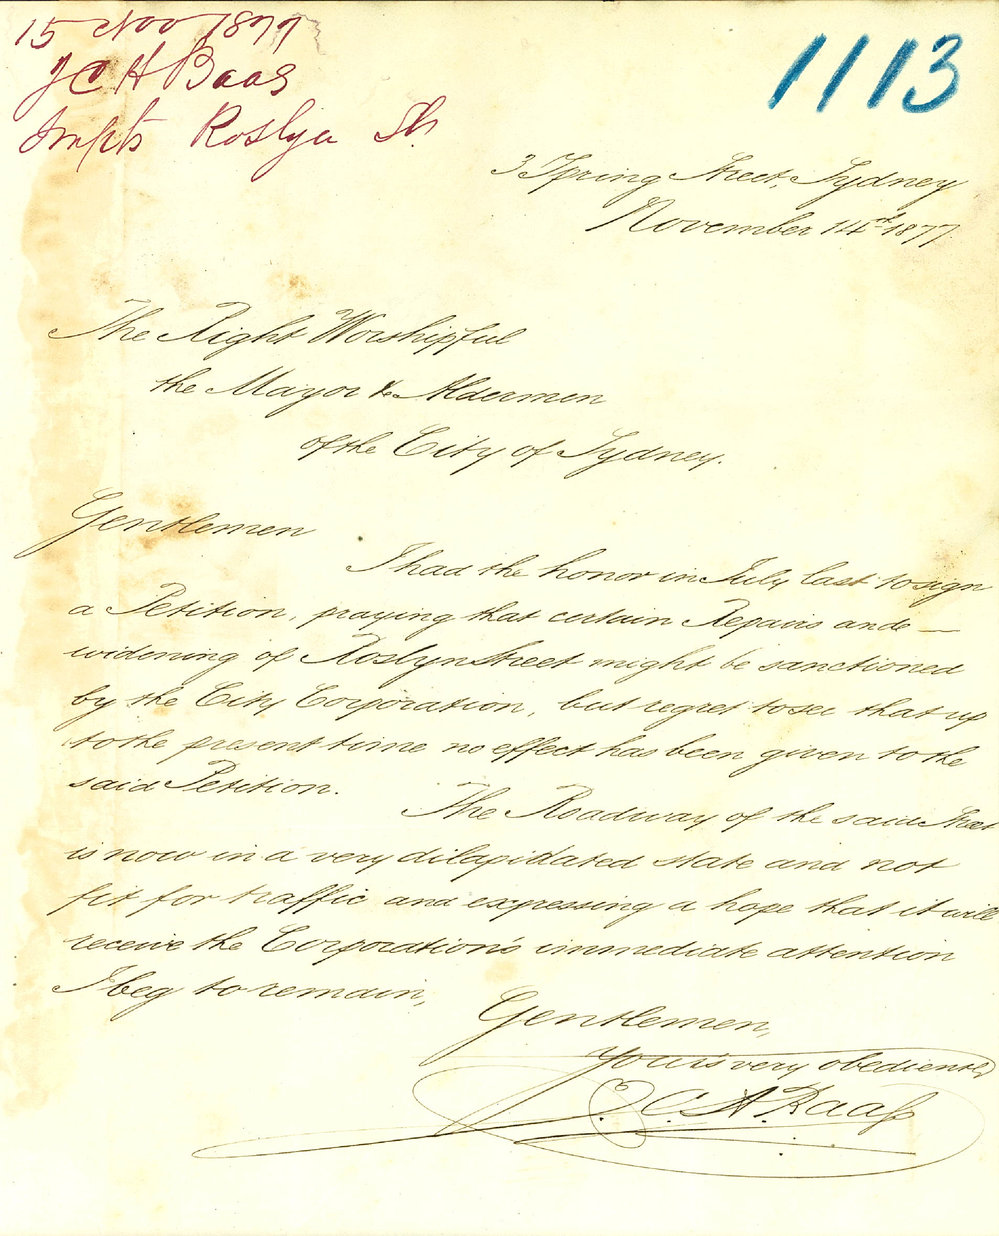 15 Nov 1877
J C H Baas
Impts Roslyn St.
1113
3 Spring Street, Sydney
November 14th 1877.
The Right Worshipful
the Mayor & Aldermen
of the City of Sydney.
Gentlemen
I had the honor in July last to sign
a Petition, praying that certain Repairs and
widening of Roslyn Street might be sanctioned
by the City Corporation, but regret to see that up
to the present time no effect has been given to the
said Petition.
The Roadway of the said Street
is now in a very dilapidated state and not
fit for traffic and expressing a hope that it will
receive the Corporation's immediate attention
I beg to remain,
Gentlemen,
Yours very obediently
C. A. Raaß